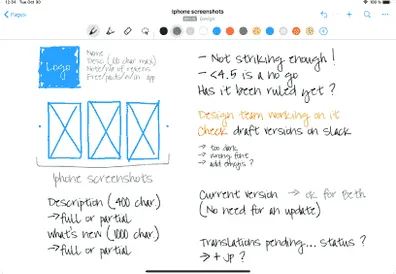 12:34 Tue Oct 30
100 %
Pages
Iphone screenshots
Design
Logo
Name
Desc (60 char max)
Note/nbr of reviews
Free/paid/w/in app
Iphone screenshots
Description (400 char)
→ full or partial
What's new (1000 char)
→ full or partial
- Not striking enough!
- <4.5 is a no go
Has it been ruled yet?
Design team working on it
Check draft versions on slack
→ too dark
→ wrong font
→ add emojis?
Current version → ok for Beth
(No need for an update)
Translations pending... status?
→ + JP?